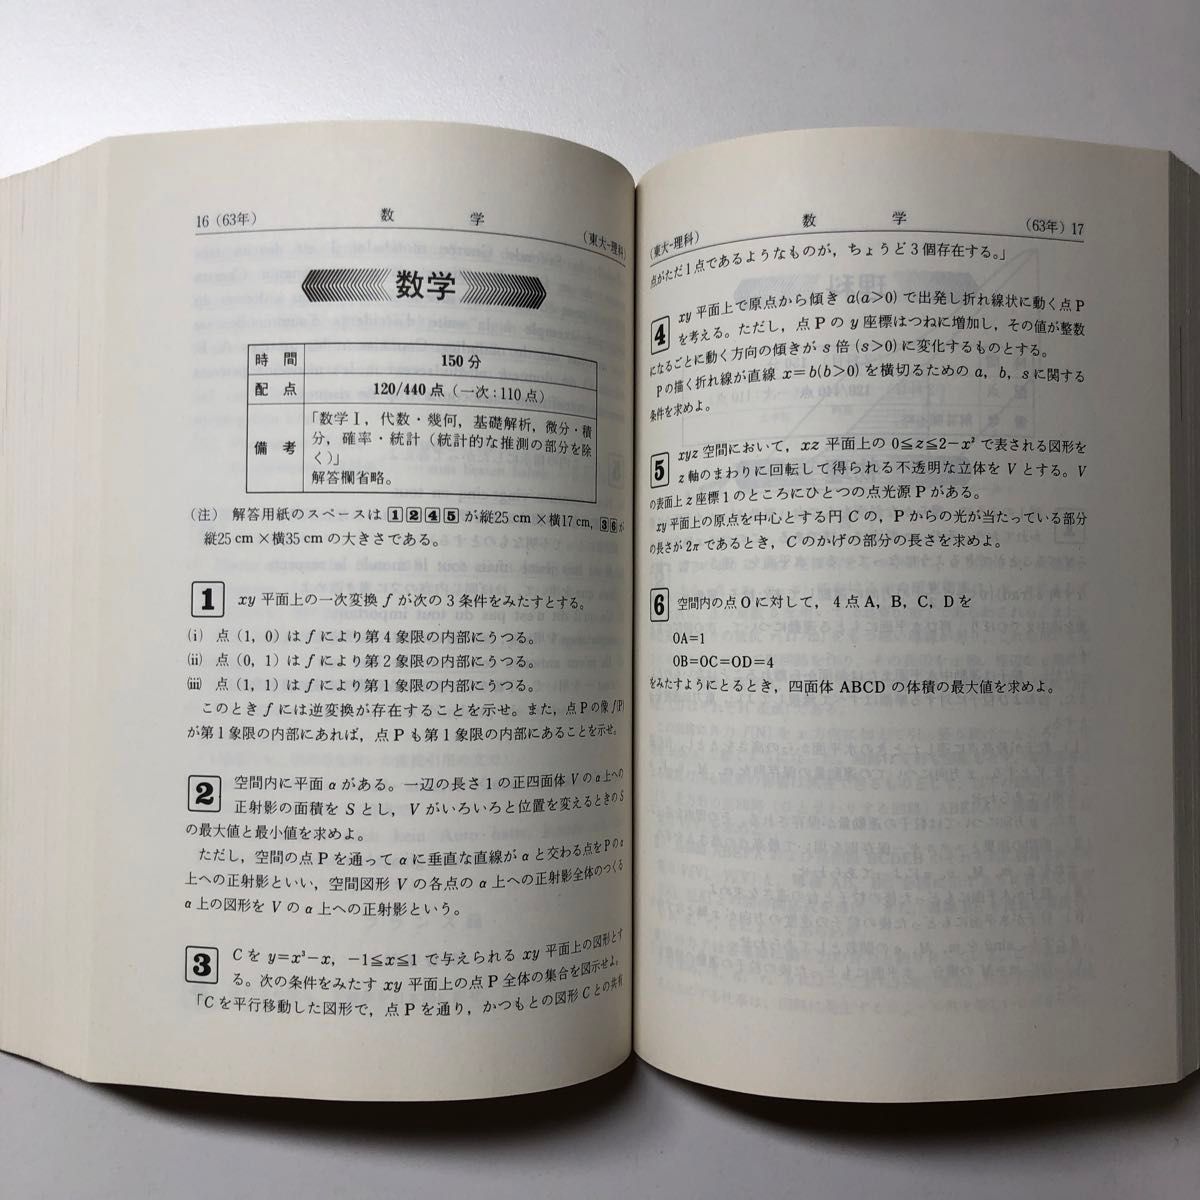 16 (63年) 数 学
(東大-理科)
数学
時 間 150分
配 点 120/440点 (一次:110点)
備 考 「数学Ⅰ, 代数・幾何, 基礎解析, 微分・積
分, 確率・統計 (統計的な推測の部分を除
く)」
解答欄省略。
(注) 解答用紙のスペースは 1 2 4 5 が縦25cm×横17cm, 3 6 が
縦25cm×横35cmの大きさである。
1 xy 平面上の一次変換 f が次の3条件をみたすとする。
(i) 点 (1, 0) は f により第4象限の内部にうつる。
(ii) 点 (0, 1) は f により第2象限の内部にうつる。
(iii) 点 (1, 1) は f により第1象限の内部にうつる。
このとき f には逆変換が存在することを示せ。また, 点Pの像 f(P)
が第1象限の内部にあれば, 点Pも第1象限の内部にあることを示せ。
2 空間内に平面 α がある。一辺の長さ1の正四面体 V の α 上への
正射影の面積を S とし, V がいろいろと位置を変えるときの S
の最大値と最小値を求めよ。
ただし, 空間の点Pを通って α に垂直な直線が α と交わる点をPの α
上への正射影といい, 空間図形 V の各点の α 上への正射影全体のつくる
α 上の図形を V の α 上への正射影という。
3 C を y=x³−x, −1≦x≦1 で与えられる xy 平面上の図形とす
る。次の条件をみたす xy 平面上の点P全体の集合を図示せよ。
「Cを平行移動した図形で, 点Pを通り, かつもとの図形Cとの共有
数 学 (63年) 17
(東大-理科)
点がただ1点であるようなものが, ちょうど3個存在する。」
4 xy 平面上で原点から傾き a(a>0) で出発し折れ線状に動く点P
を考える。ただし, 点Pの y 座標はつねに増加し, その値が整数
になるごとに動く方向の傾きが s 倍 (s>0) に変化するものとする。
Pの描く折れ線が直線 x=b(b>0) を横切るための a, b, s に関する
条件を求めよ。
5 xyz 空間において, xz 平面上の 0≦z≦2−x² で表される図形を
z 軸のまわりに回転して得られる不透明な立体を V とする。V
の表面上 z 座標1のところにひとつの点光源Pがある。
xy 平面上の原点を中心とする円Cの, Pからの光が当たっている部分
の長さが 2π であるとき, Cのかげの部分の長さを求めよ。
6 空間内の点Oに対して, 4点A, B, C, Dを
OA=1
OB=OC=OD=4
をみたすようにとるとき, 四面体 ABCD の体積の最大値を求めよ。